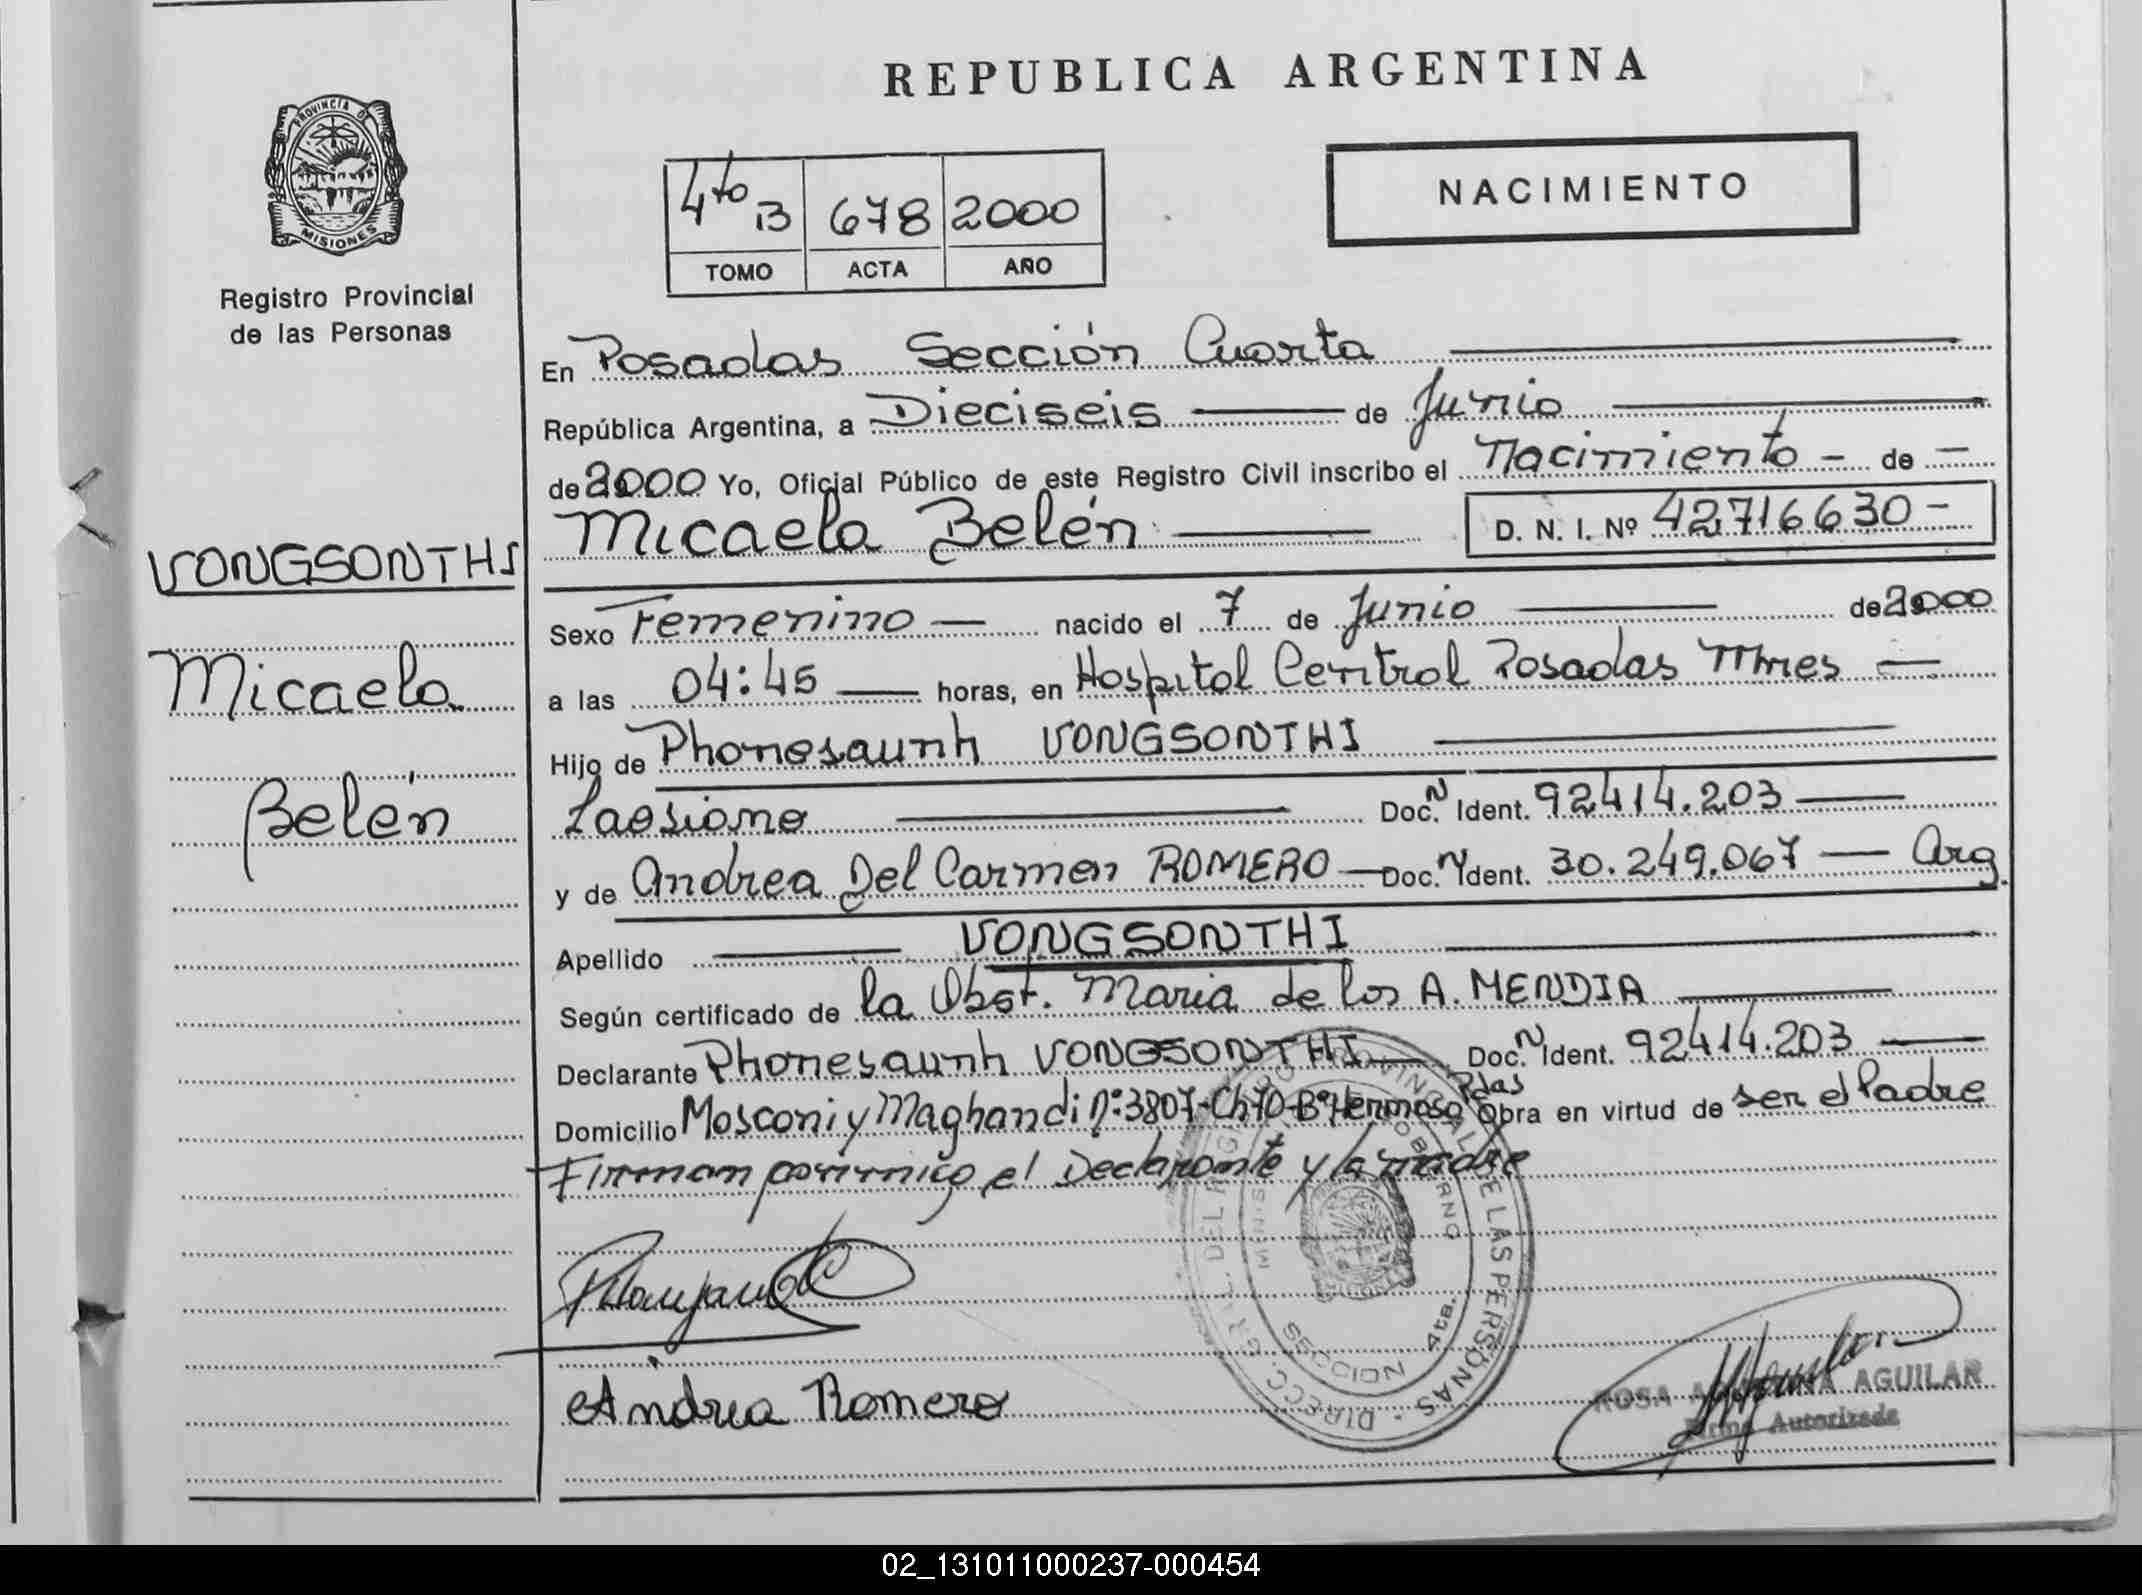 REPUBLICA ARGENTINA
PROVINCIA DE
MISIONES
Registro Provincial
de las Personas
4to B 678 2000
TOMO ACTA AÑO
NACIMIENTO
En Posadas Sección Cuarta
República Argentina, a Dieciseis de Junio
de 2000 Yo, Oficial Público de este Registro Civil inscribo el Nacimiento - de -
Micaela Belén D. N. I. Nº 42716630 -
VONGSONTHI
Micaela
Belén
Sexo Femenino — nacido el 7 de Junio de 2000
a las 04:45 horas, en Hospital Central Posadas Mnes
Hijo de Phonesaunh VONGSONTHI
Laosiano Doc. N Ident. 92414.203
y de Andrea Del Carmen ROMERO — Doc. N Ident. 30.249.067 — Arg.
Apellido VONGSONTHI
Según certificado de la Obst. Maria de los A. MENDIA
Declarante Phonesaunh VONGSONTHI Doc. N Ident. 92414.203
Domicilio Mosconi y Maghandi nº 3807-Ch70-Bº Hermoso Pdas Obra en virtud de ser el Padre
Firman conmigo el Declarante y la madre
DIRECC. GRAL. DEL REGISTRO PROVINCIAL DE LAS PERSONAS
SECCION 4ta.
Andrea Romero
ROSA AGUILAR
Firma Autorizada
02_131011000237-000454